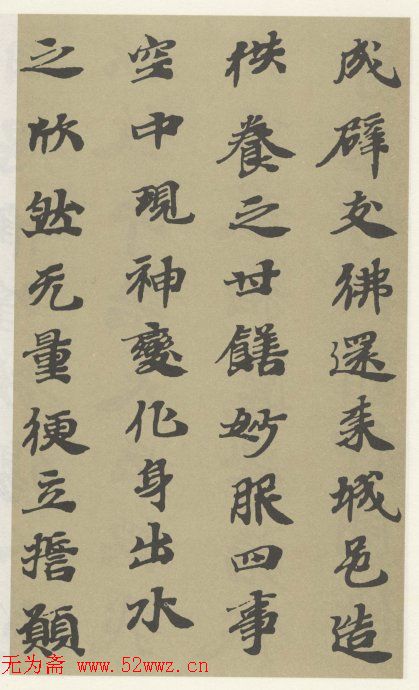 成辟支佛還来城邑造
供養之甘饍妙服四事
空中現神變化身出水
之欣然无量便立擔願
无为斋 www.52wwz.cn